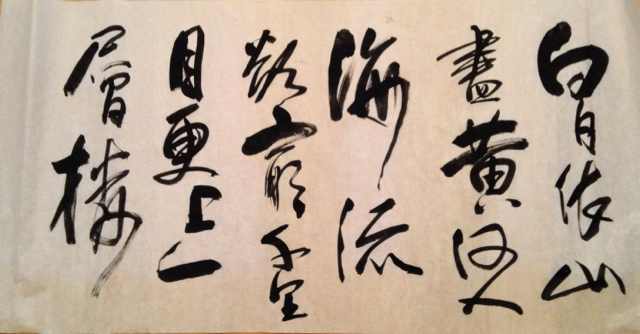 白日依山
盡黄河入
海流
欲窮千里
目更上一
層樓